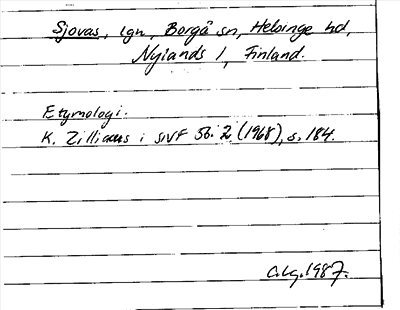 Sjovas, lgn, Borgå sn, Helsinge hd,
Nylands l, Finland.
Etymologi.
K. Zilliacus i SNF 56:2 (1968), s. 184.
1987.